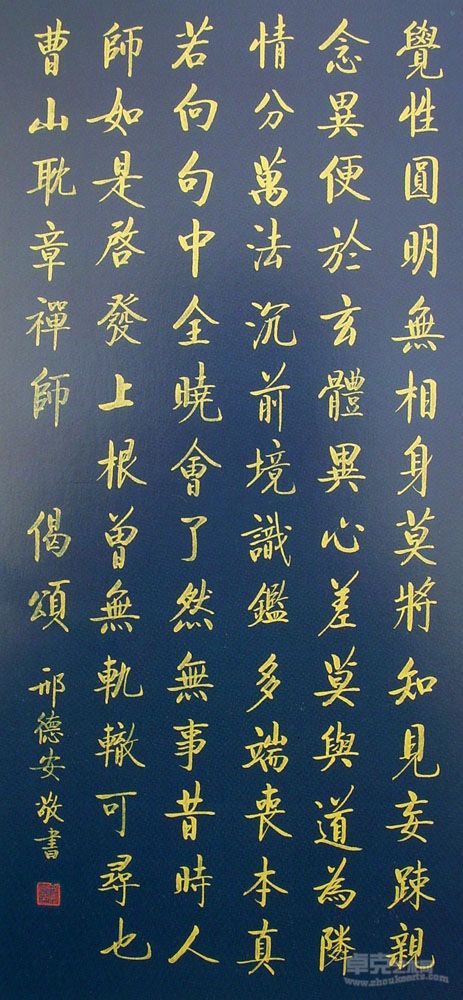 覺性圓明無相身莫將知見妄踈親
念異便於玄體異心差莫與道為隣
情分萬法沉前境識鑑多端喪本真
若向句中全曉會了然無事昔時人
師如是啓發上根曾無軌轍可尋也
曹山耽章禪師 偈頌 邢德安敬書
卓克
www.zhuokearts.com